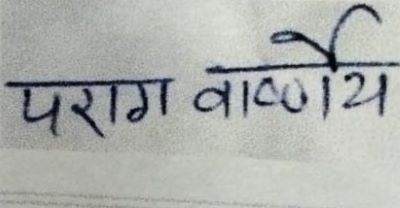 पराग वार्ष्णेय